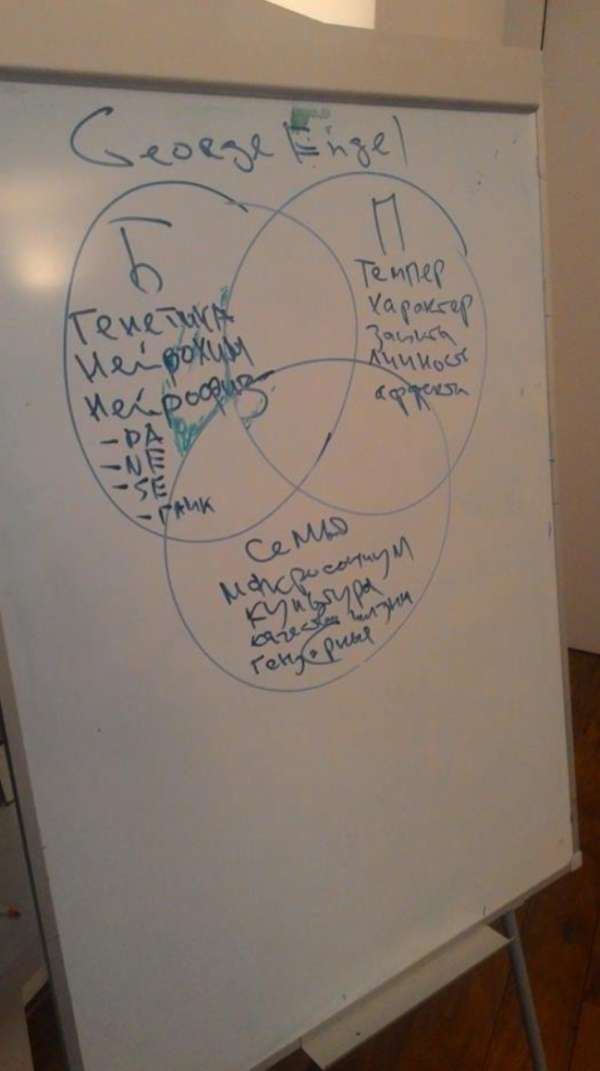 George Engel
Б
Генетика
Нейрохим
Нейрофиз
- DA
- NE
- SE
- ГАМК
П
Темпер
Характер
Защита
Личность
аффекты
Семья
Макросоциум
культура
качество жизни
Гендерные